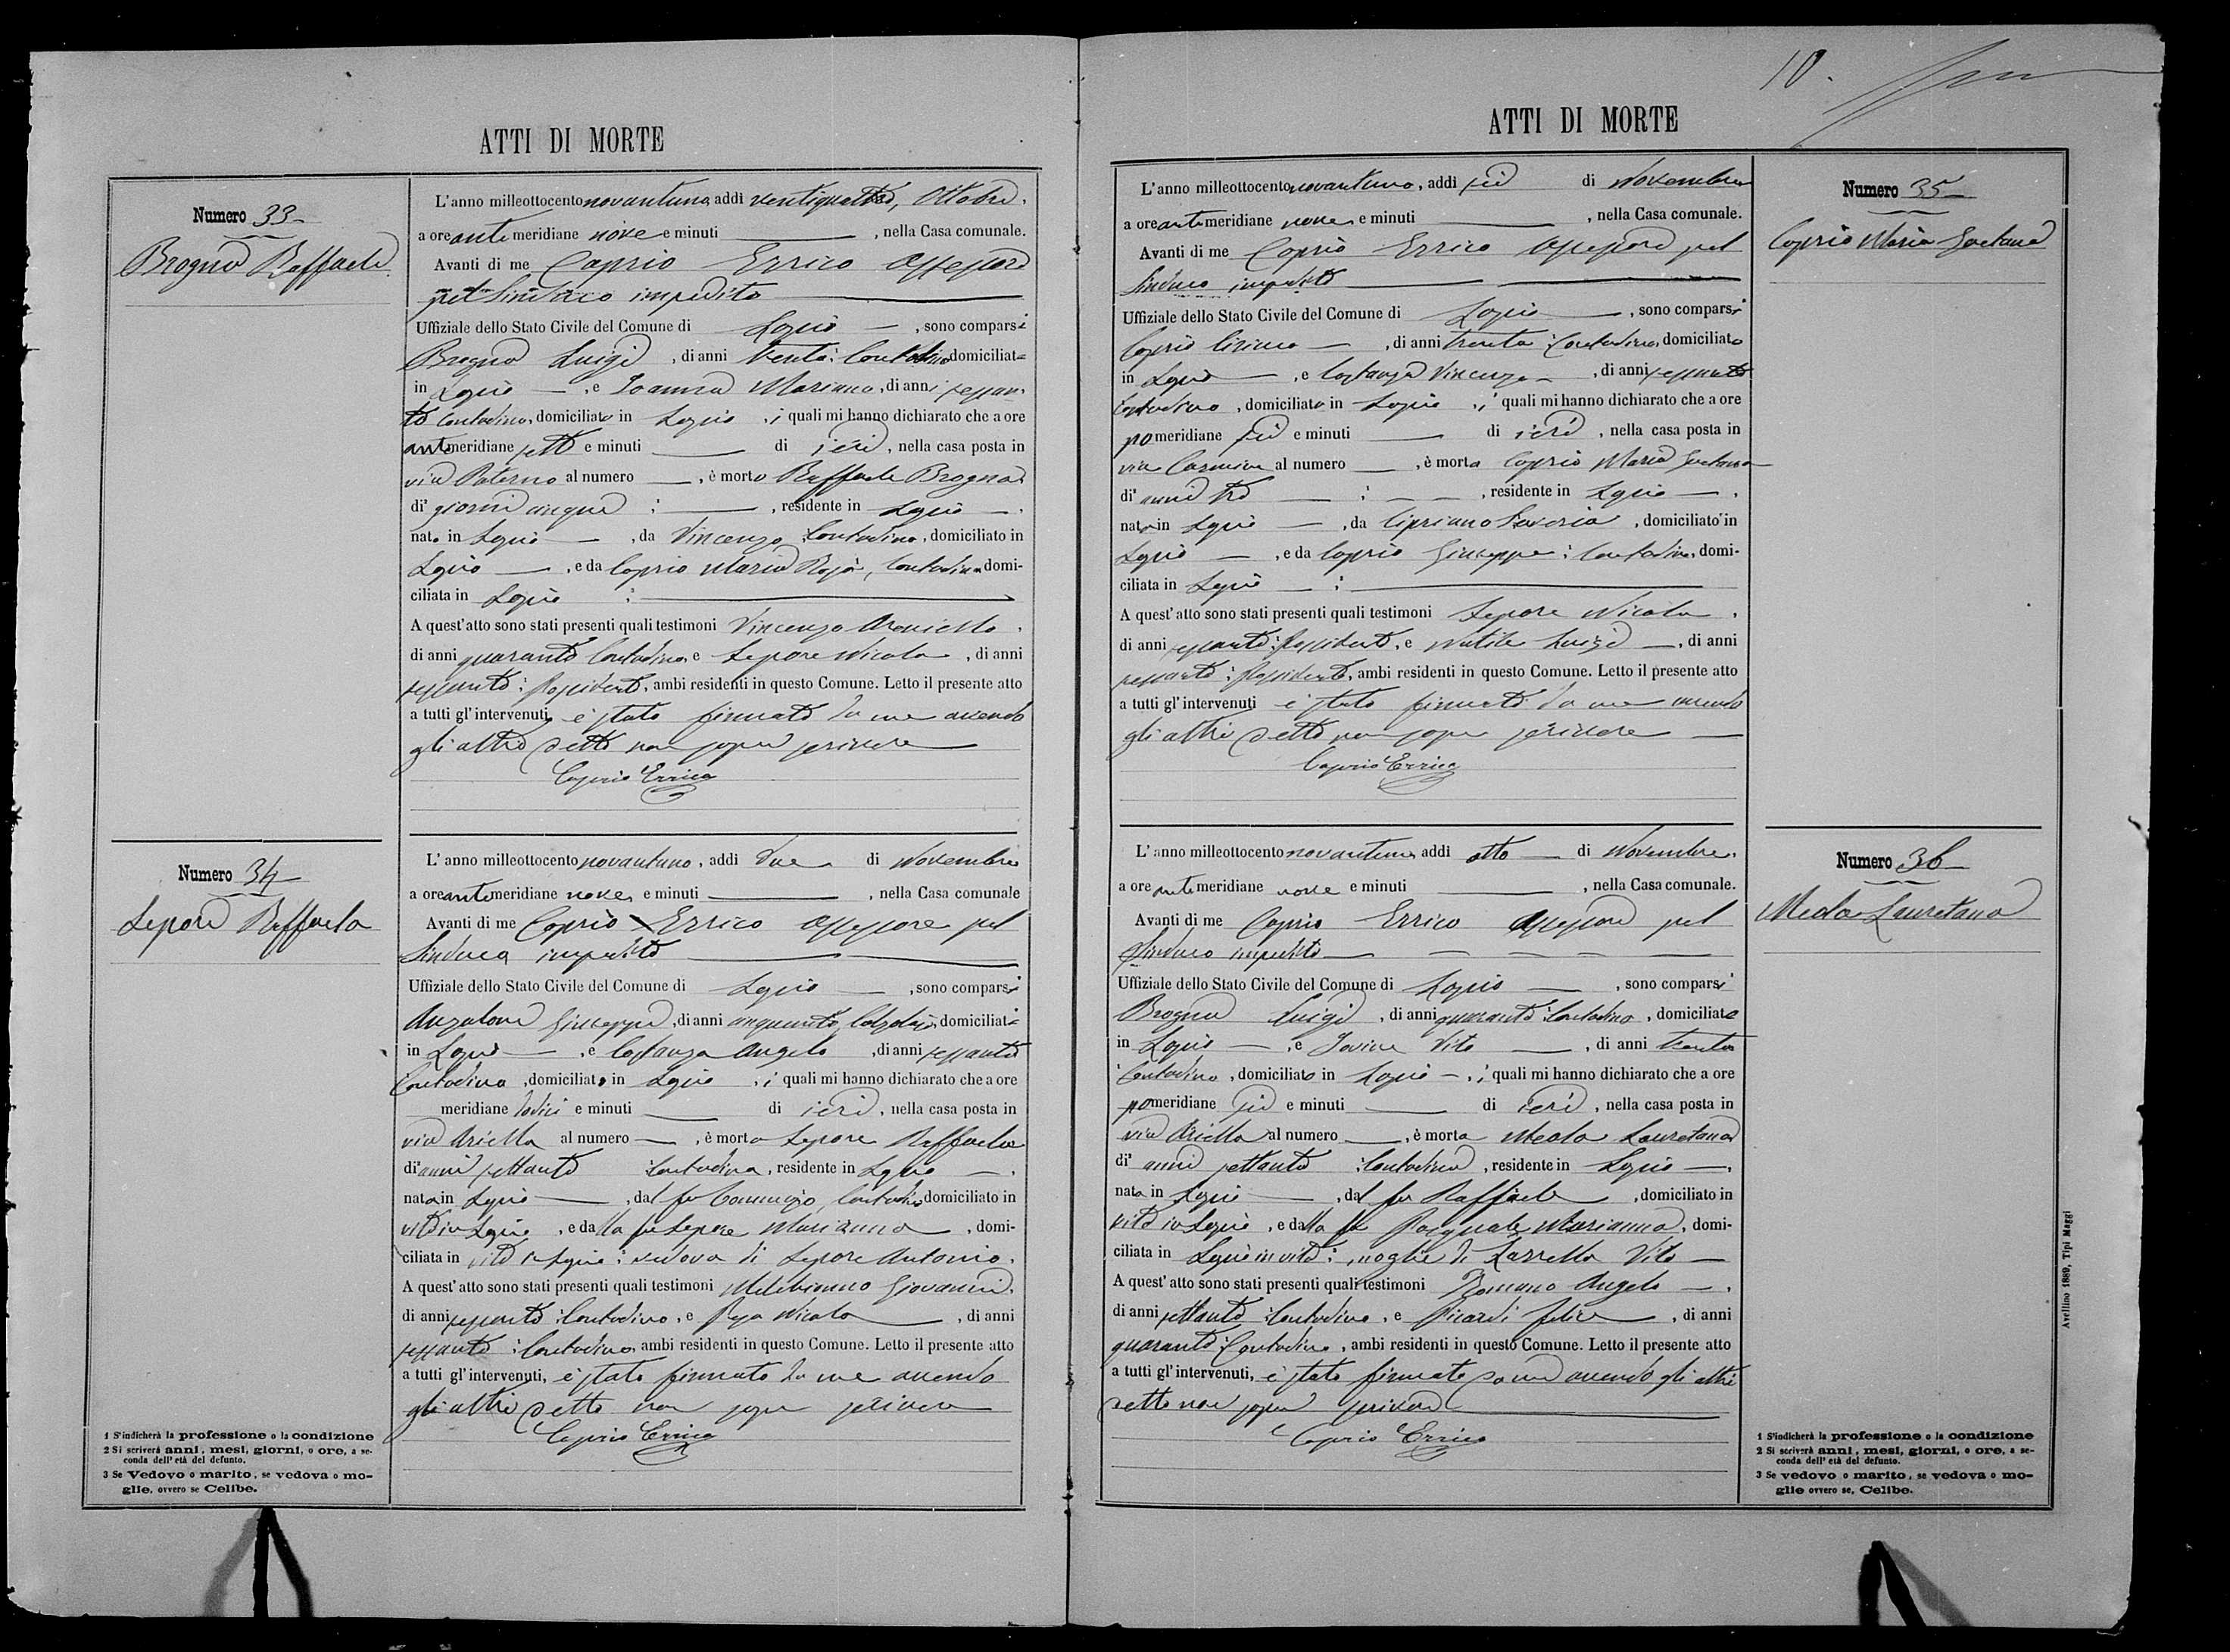 ATTI DI MORTE
Numero 33
Brogna Raffaele
L'anno milleottocento novantuno, addi ventiquattro, Ottobre,
a ore antimeridiane nove e minuti , nella Casa comunale.
Avanti di me Caprio Errico Assessore
pel Sindaco impedito
Uffiziale dello Stato Civile del Comune di Lapio , sono comparsi
Brogna Luigi , di anni trenta: Contadino domiciliat
in Lapio , e Joanna Mariano, di anni sessan
ta Contadino, domiciliato in Lapio , i quali mi hanno dichiarato che a ore
antimeridiane sette e minuti di ieri, nella casa posta in
via Paterno al numero , è morto Raffaele Brogna
di giorni cinque : , residente in Lapio .
nato in Lapio , da Vincenzo Contadino, domiciliato in
Lapio , e da Caprio Maria Rosa, Contadina domi-
ciliata in Lapio :
A quest'atto sono stati presenti quali testimoni Vincenzo .
di anni quaranta Contadino e Lepore Nicola , di anni
sessanta: Possidente, ambi residenti in questo Comune. Letto il presente atto
a tutti gl'intervenuti, è stato firmato da me avendo
gli altri detto non saper scrivere
Caprio Errico
Numero 34
Lepore Raffaela
L'anno milleottocento novantuno, addi due di Novembre
a ore antimeridiane nove, e minuti , nella Casa comunale
Avanti di me Caprio Errico Assessore pel
Sindaco impedito
Uffiziale dello Stato Civile del Comune di Lapio , sono comparsi
Anzalone Giuseppe, di anni cinquanta, Calzolajo, domiciliat
in Lapio , e Costanza Angelo , di anni sessanta
Contadino , domiciliato in Lapio , i quali mi hanno dichiarato che a ore
meridiane dodici e minuti di ieri, nella casa posta in
via Ariella al numero , è morta Lepore Raffaela
di anni settanta Contadina, residente in Lapio .
nata in Lapio , dal fu Contadino domiciliato in
vita in Lapio , e dalla fu Lepore Marianna , domi-
ciliata in vita in Lapio: vedova di Lepore Antonio.
A quest'atto sono stati presenti quali testimoni Giovanni,
di anni sessanta: Contadino, e Nicola , di anni
sessanta: Contadino, ambi residenti in questo Comune. Letto il presente atto
a tutti gl'intervenuti, è stato firmato da me avendo
gli altri detto non saper scrivere
Caprio Errico
1 S'indicherà la professione o la condizione
2 Si scriverà anni, mesi, giorni, o ore, a se-
conda dell'età del defunto.
3 Se Vedovo o marito, se vedova o mo-
glie, ovvero se Celibe.
10.
ATTI DI MORTE
Numero 35
Caprio Maria Gaetana
L'anno milleottocento novantuno, addi sei di Novembre
a ore antimeridiane nove e minuti , nella Casa comunale.
Avanti di me Caprio Errico Assessore pel
Sindaco impedito
Uffiziale dello Stato Civile del Comune di Lapio , sono comparsi
Caprio Ciriaco , di anni trenta: Contadino, domiciliato
in Lapio , e Costanza Vincenzo , di anni sessanta
Contadino , domiciliato in Lapio , i quali mi hanno dichiarato che a ore
pomeridiane sei e minuti di ieri , nella casa posta in
via Carmine al numero , è morta Caprio Maria Gaetana
di anni tre : , residente in Lapio .
nata in Lapio , da Cipriano Saveria , domiciliato in
Lapio , e da Caprio Giuseppe: Contadino, domi-
ciliata in Lapio :
A quest'atto sono stati presenti quali testimoni Lepore Nicola .
di anni sessanta: Possidente, e Luigi , di anni
sessanta: Possidente, ambi residenti in questo Comune. Letto il presente atto
a tutti gl'intervenuti è stato firmato da me avendo
gli altri detto non saper scrivere
Caprio Errico
Numero 36
Meola Lauretana
L'anno milleottocento novantuno, addi otto di Novembre,
a ore antimeridiane nove e minuti , nella Casa comunale.
Avanti di me Caprio Errico Assessore pel
Sindaco impedito
Uffiziale dello Stato Civile del Comune di Lapio , sono comparsi
Brogna Luigi , di anni quaranta: Contadino , domiciliato
in Lapio , e Jovine Vito , di anni trenta
Contadino , domiciliato in Lapio , i quali mi hanno dichiarato che a ore
pomeridiane sei e minuti di ieri , nella casa posta in
via Ariella al numero , è morta Meola Lauretana
di anni settanta: Contadina , residente in Lapio .
nata in Lapio , dal fu Raffaele , domiciliato in
vita in Lapio , e dalla fu Pasquale Marianna, domi-
ciliata in Lapio in vita: moglie di Vito
A quest'atto sono stati presenti quali testimoni Romano Angelo .
di anni settanta: Contadino, e Picardi Felice , di anni
quaranta: Contadino, ambi residenti in questo Comune. Letto il presente atto
a tutti gl'intervenuti, è stato firmato da me avendo gli altri
detto non saper scrivere
Caprio Errico
1 S'indicherà la professione o la condizione
2 Si scriverà anni, mesi, giorni, o ore, a se-
conda dell'età del defunto.
3 Se vedovo o marito, se vedova o mo-
glie ovvero se, Celibe.
Avellino 1889, Tipi Maggi